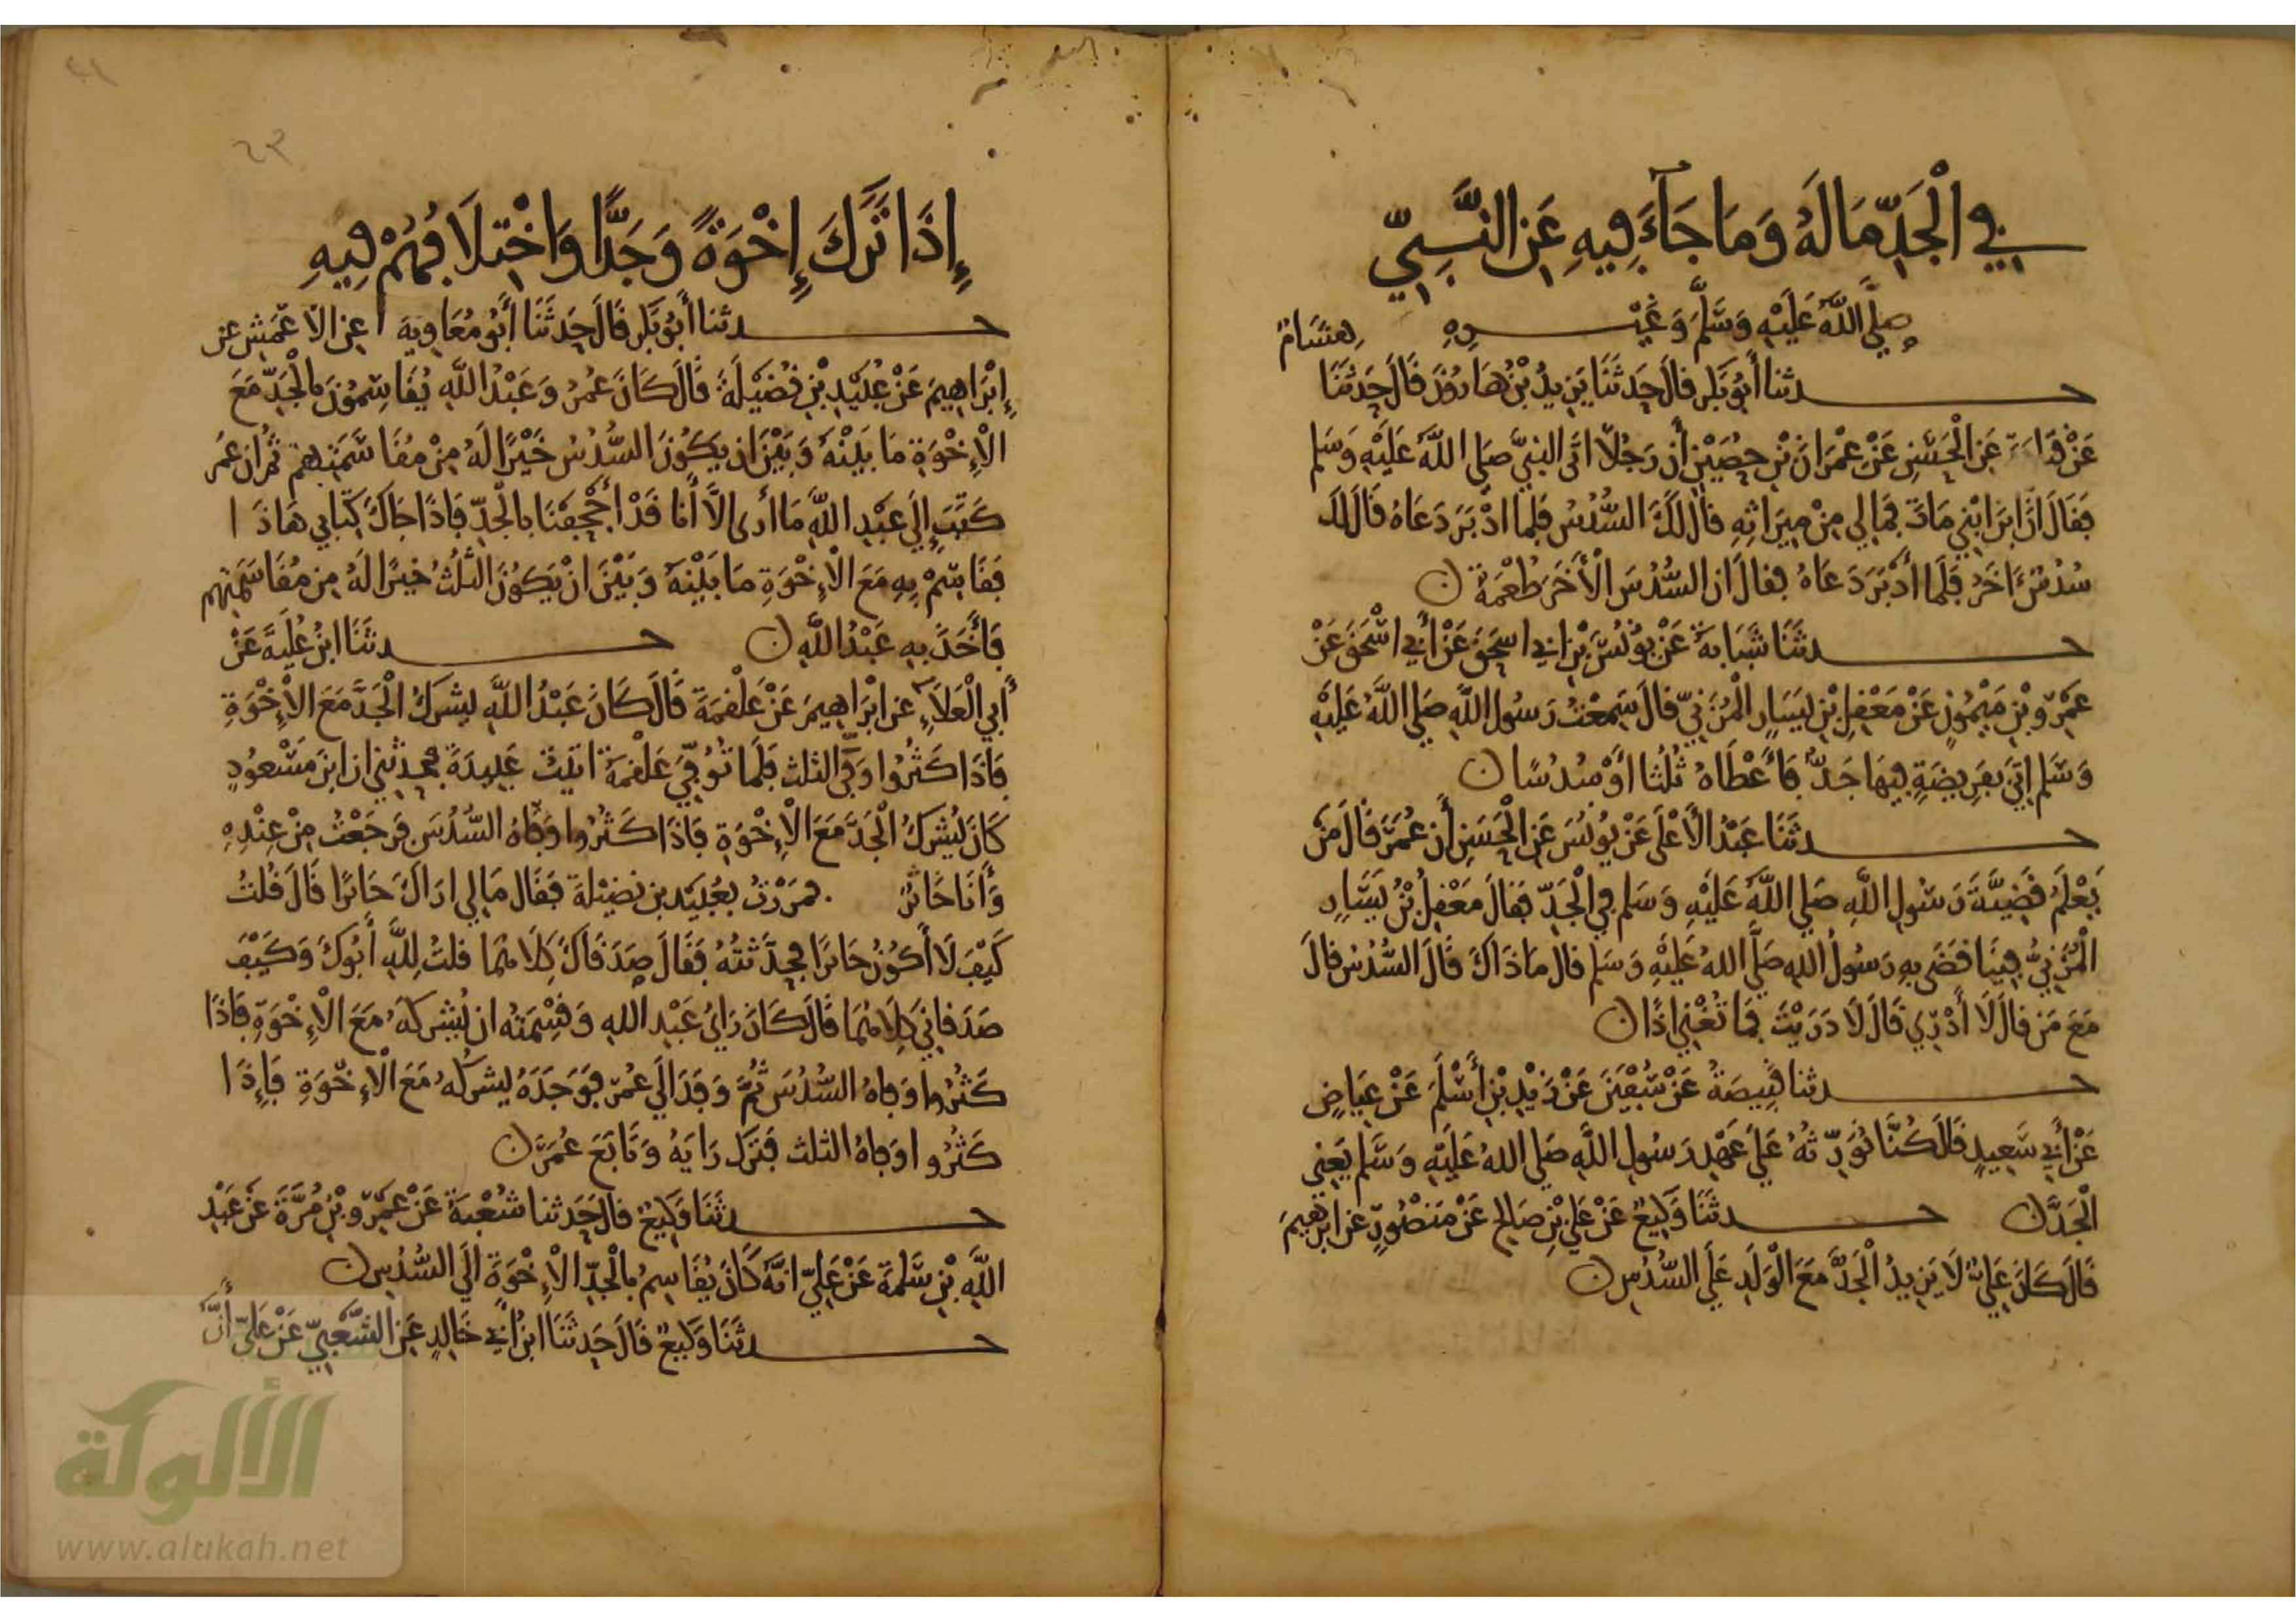 في الْجَدِّ مَا لَهُ وَمَا جَآءَ فِيهِ عَنِ النَّبِيِّ
صَلَّى اللَّهُ عَلَيْهِ وَسَلَّمَ وَغَيْرِهِ
حدثنا أَبُو بَكر قال حَدثَنَا يَزِيدُ بْنُ هَارُونَ قَالَ حَدثَنَا هِشَامٌ
عَنْ قَتَادَةَ عَنِ الْحَسَنِ عَنْ عِمْرَانَ بْنِ حُصَيْنٍ أَن رَجُلًا أتَى النبيَّ صَلى اللَّهُ عَلَيْهِ وَسَلم
فَقَالَ انَّ ابنَ ابْنِي مَاتَ فَمَا لِي مِنْ مِيرَاثِهِ قال لَكَ السُّدُسُ فَلما ادْبَرَ دَعَاهُ قَالَ لَكَ
سُدُسٌ ءَاخَرُ فَلَما أَدْبَرَ دَعَاهُ فقالَ ان السُّدُسَ الْأَخَرَ طُعْمَةٌ ن
حدثَنَا شَبَابَةُ عَنْ يُونُسَ بْنِ ابي اسحَقَ عَنْ أَبي اسْحَقَ عَنْ
عَمْرِو بْنِ مَيْمُونٍ عَنْ مَعْقِلِ بْنِ يَسَارٍ الْمُزَنِيِّ قال سَمِعْتُ رَسُولَ اللَّهِ صَلى اللَّهُ عَلَيْهِ
وَسَلم اتِيَ بفَرِيضَةٍ فِيهَا جَدٌّ فَأَعْطَاهُ ثُلُثا أَوْ سُدُسًا ن
حدثَنَا عَبْدُ الْأَعْلَى عَنْ يُونُسَ عَنِ الْحَسَنِ أَن عُمَرَ قَالَ مَنْ
يَعْلَمُ قَضِيَّةَ رَسُولِ اللَّهِ صَلى اللَّهُ عَلَيْهِ وَسَلم في الْجَدِّ فقالَ مَعْقِلُ بْنُ يَسَارٍ
الْمُزَنِيُّ فِينَا قَضَى بِهِ رَسُولُ اللهِ صَلَّى اللهُ عَلَيْهِ وَسَلم قال مَاذَاكَ قَالَ السُّدُسُ قَالَ
مَعَ مَن قالَ لَا أَدْرِي قَالَ لَا دَرَيْتَ فَمَا تُغْنِي اذًا ن
حدثنا قَبِيصَةُ عَنْ سُفْيَنَ عَنْ زَيْدِ بْنِ أَسْلَمَ عَنْ عِيَاضٍ
عَنْ أَبي سَعِيدٍ قَالَ كُنَّا نُوَرِّثُهُ عَلَى عَهْدِ رَسُولِ اللَّهِ صَلى اللهُ عَلَيْهِ وَسَلم يَعْنِي
الْجَدَّ ن حدثَنَا وَكِيعٌ عَنْ عَلِيِّ بْنِ صَالِحٍ عَنْ مَنْصُورٍ عَن ابرَهِيمَ
قَالَ كَانَ عَلِيٌّ لَا يَزِيدُ الْجَدَّ مَعَ الْوَلَدِ عَلَى السُّدُسِ ن
إِذَا تَرَكَ إِخْوَةً وَجَدًّا وَاخْتِلَافُهُمْ فِيهِ
حدثنا أَبُو بَكر قَالَ حَدثَنَا أَبُو مُعَاوِيَةَ عن الاعْمَشِ عن
إِبْرَاهِيمَ عَنْ عُبَيْدِ بْنِ نُضَيْلَةَ قَالَ كَانَ عُمَرُ وَعَبْدُ اللَّهِ يُقَاسِمُونَ بالْجَدِّ مَعَ
الْإِخْوَةِ مَا بَيْنَهُ وَبَيْنَ ان يَكُونَ السُّدُسُ خَيْرًا لَهُ مِنْ مُقَاسَمَتِهِم ثُمَّ ان عُمَرَ
كَتَبَ إِلَى عَبْدِ اللَّهِ مَا أَرَى الَّا أَنا قَدْ أَجْحَفْنَا بالْجَدِّ فَاذَا جَاكَ كِتَابي هَاذَا
فَقَاسِمْ بِهِ مَعَ الْإِخْوَةِ مَا بَيْنَهُ وَبَيْنَ انْ يَكُونَ الثُّلُثُ خيرًا لَهُ مِن مُقَاسَمَتِهِم
فَأَخَذَ بِهِ عَبْدُ اللَّهِ ن حدثَنَا ابْنُ عُلَيَّةَ عَنْ
أَبي الْعَلَاءِ عن ابْرَاهِيمَ عَنْ عَلْقَمَةَ قَالَ كَانَ عَبْدُ اللَّهِ يُشرِكُ الْجَدَّ مَعَ الْإِخْوَةِ
فَاذَا كَثُرُوا وَفَّى الثلث فَلَما تُوُفِّيَ عَلْقَمَةُ اتَيْتُ عَبِيدَةَ فحدثني ان ابنَ مَسْعُودٍ
كَانَ يُشْرِكُ الْجَدَّ مَعَ الْإِخْوَةِ فَاذَا كَثُرُوا وَفَّاهُ السُّدُسَ فَرَجَعْتُ مِنْ عِنْدِهِ
وَأَنَا خَاثرٌ فمَرَرْتُ بعُبَيدِ بن نضَيْلَةَ فَقَالَ مَا لِي ارَاكَ خَاثرًا قَالَ قُلْتُ
كَيْفَ لَا أَكُونُ خَاثرًا فحدَّثْتُهُ فَقَالَ صَدَقَاكَ كِلَاهُمَا قلتُ لِلَّهِ أَبُوكَ وَكَيْفَ
صَدَقَانِي كِلَاهُمَا قَالَ كَانَ رَايُ عَبْدِ اللهِ وَقِسْمَتُه ان يُشرِكَهُ مَعَ الْإِخْوَةِ فَاذَا
كَثُرُوا وَفاهُ السُّدُسَ ثُمَّ وَفَدَ الَى عُمَرَ فَوَجَدَهُ يُشرِكُهُ مَعَ الْإِخْوَةِ فَإِذَا
كَثُرُوا وَفاهُ الثلث فَتَرَكَ رَايَهُ وَتَابَعَ عُمَرَ ن
حدثَنَا وَكِيعٌ قالَ حَدثنا شُعْبَةُ عَنْ عَمْرِو بْنِ مُرَّةَ عَنْ عَبْدِ
اللَّهِ بْنِ سَلِمَةَ عَنْ عَلِيٍّ انَّهُ كَانَ يُقَاسِمُ بالْجَدِّ الْإِخْوَةَ الَى السُّدُسِ ن
حدثَنَا وَكِيعٌ قَالَ حَدثَنَا ابنُ أَبي خَالِدٍ عَنِ الشَّعْبِيِّ عَنْ عَلِيٍّ أَنَّهُ
الألوكة
www.alukah.net